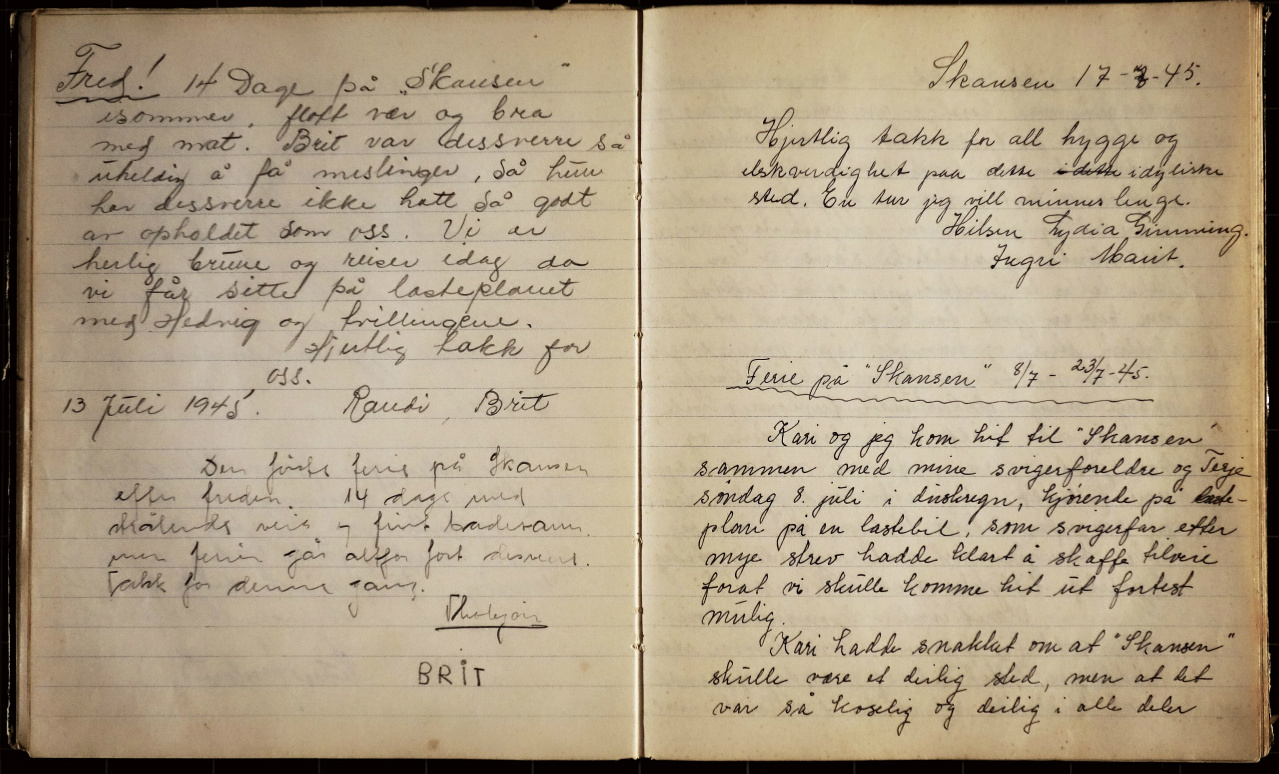 Fred! 14 Dage på "Skansen"
isommer, flott vær og bra
med mat. Brit var dessverre så
uheldig å få meslinger, så hun
har dessverre ikke hatt så godt
av opholdet som oss. Vi er
herlig brune og reiser idag da
vi får sitte på lasteplanet
med Hedvig og trillingene.
Hjertlig takk for
oss.
13 Juli 1945. Randi, Brit
Den første ferie på Skansen
efter freden. 14 dage med
strålende veir og fint badevann
men ferien går altfor fort desverre.
Takk for denne gang.
BRIT
Skansen 17-7-45.
Hjertlig takk for all hygge og
elskverdighet paa dette i dette idyliske
sted. En tur jeg vill minnes lenge.
Hilsen Lydia Gimming.
Ingri Marit.
Ferie på "Skansen" 8/7 - 23/7-45.
Kari og jeg kom hit til "Skansen"
sammen med mine svigerforeldre og Terje
søndag 8. juli i duskregn, kjørende på laste-
plan på en lastebil, som svigerfar efter
mye strev hadde klart å skaffe tilveie
forat vi skulle komme hit ut fortest
mulig.
Kari hadde snakket om at "Skansen"
skulle være et deilig sted, men at det
var så koselig og deilig i alle deler